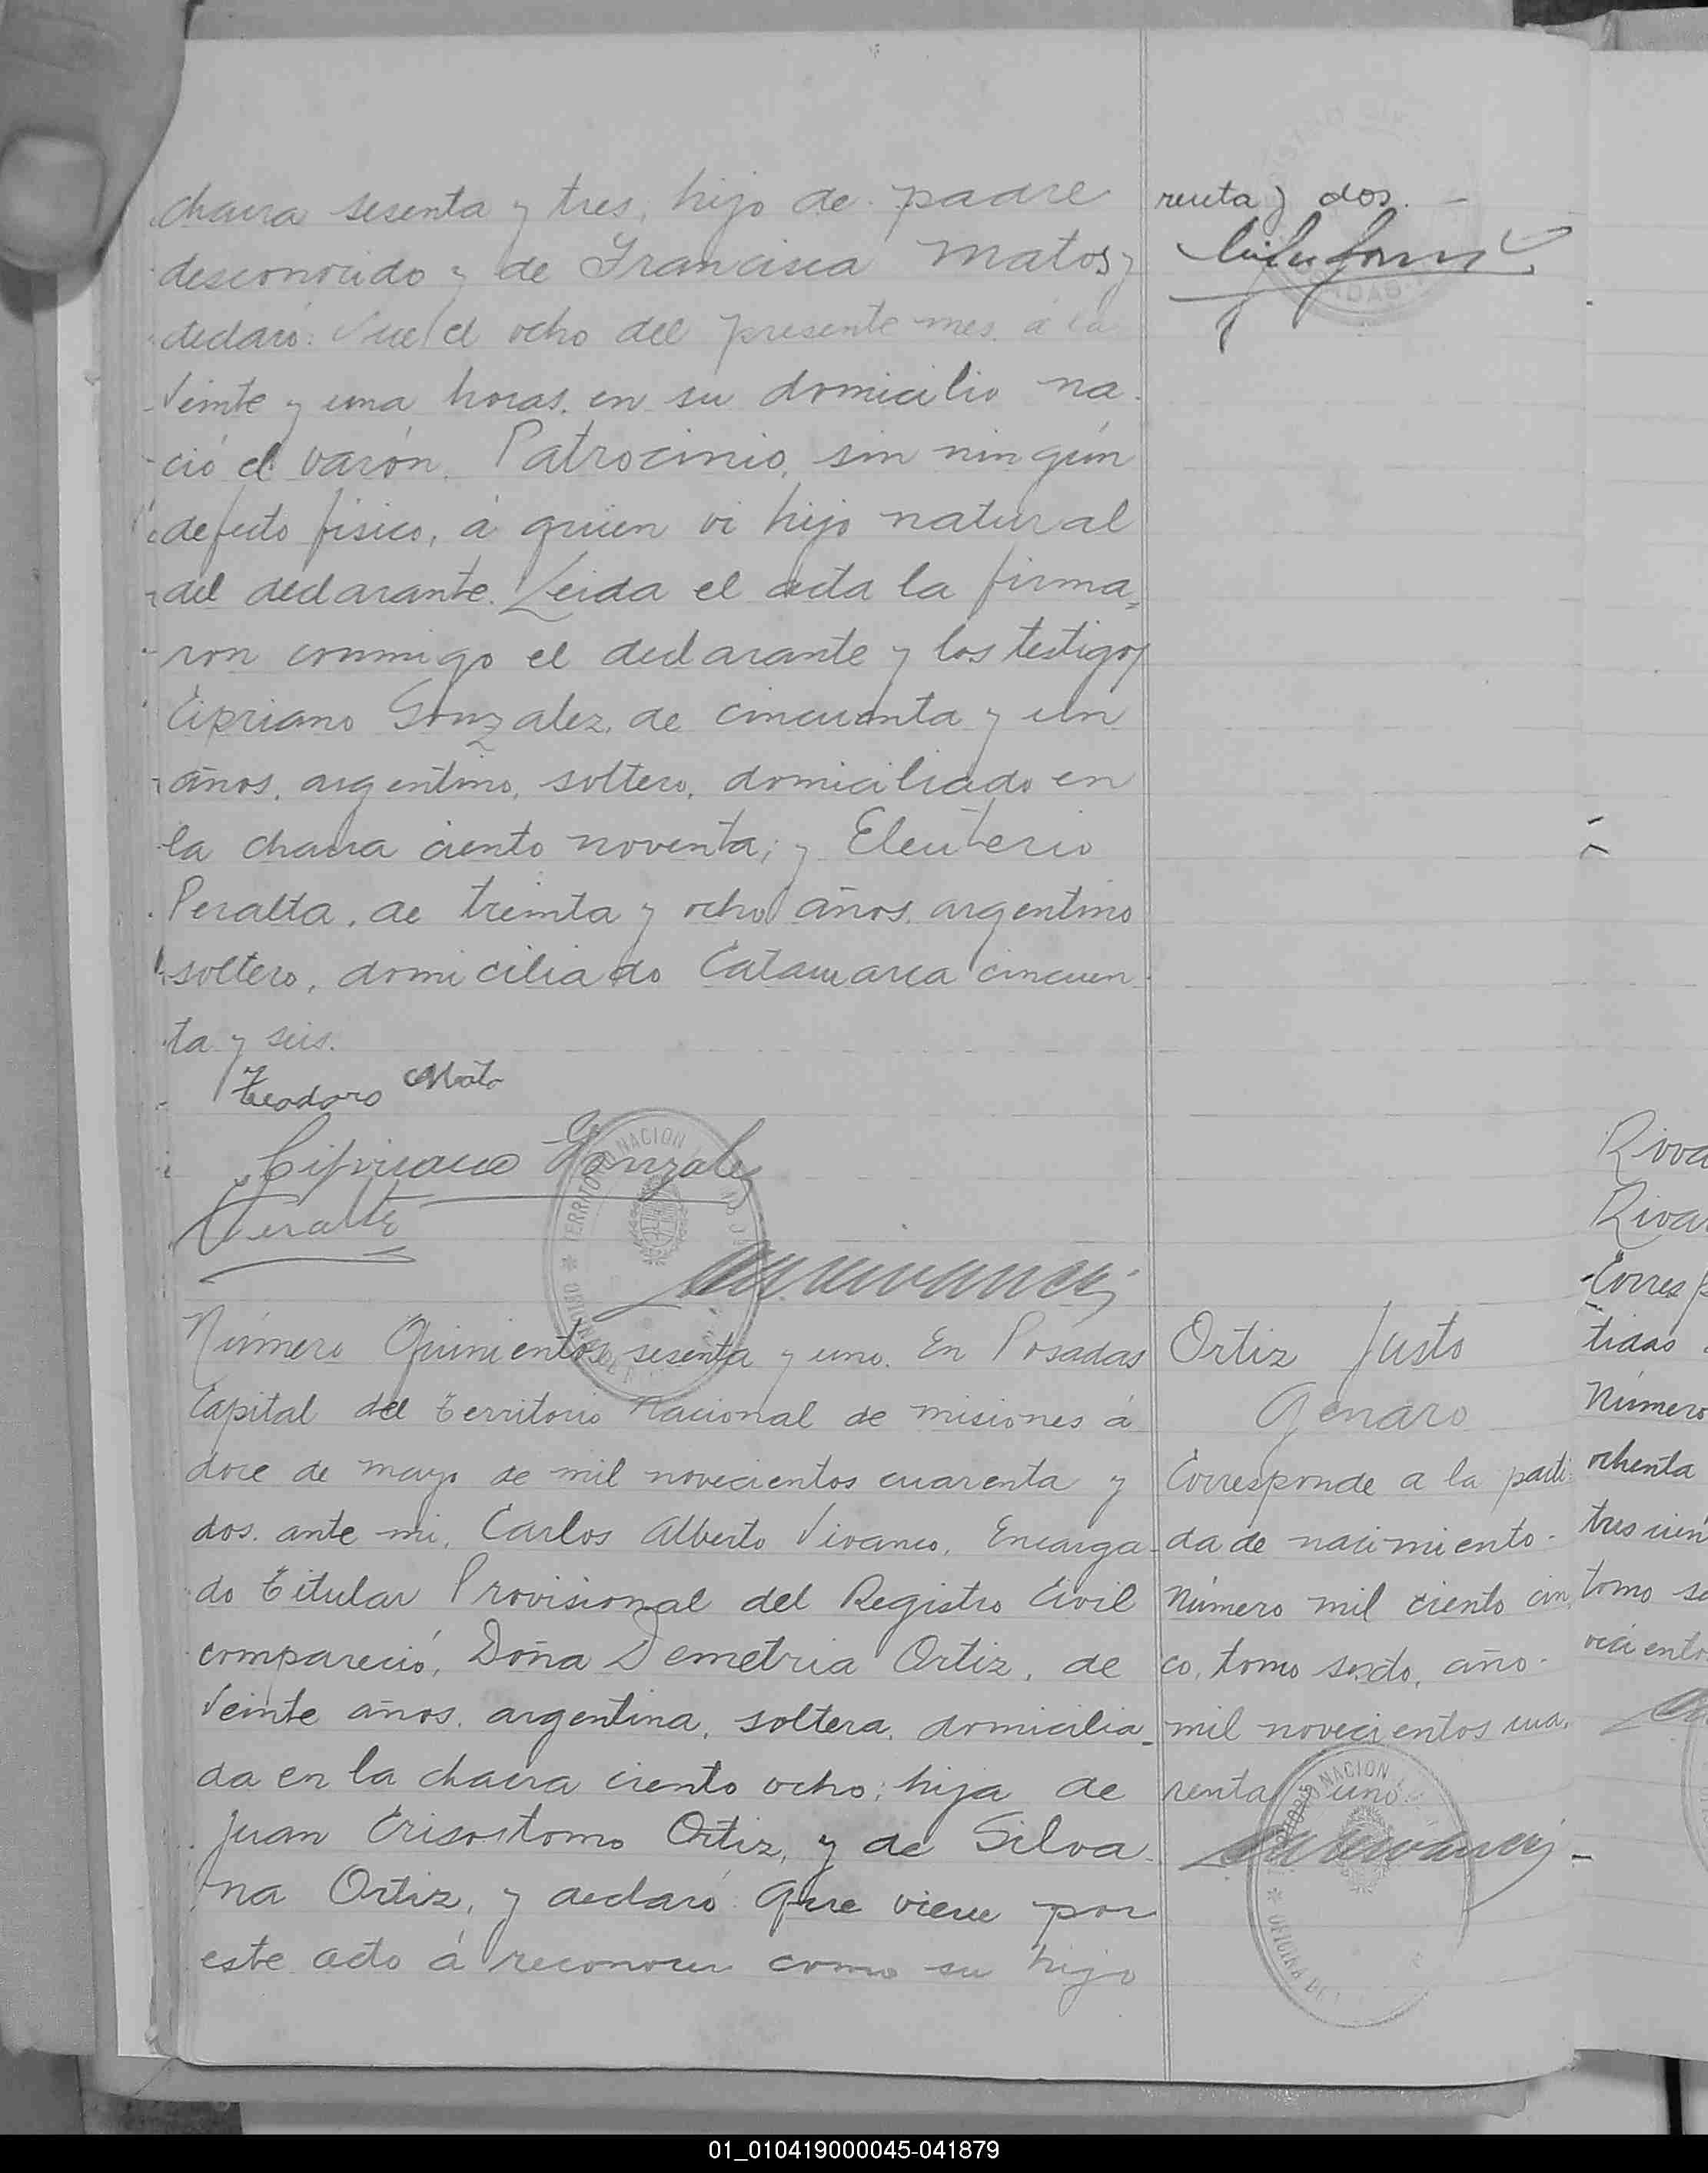 chacra sesenta y tres, hijo de padre
desconocido y de Francisca Matos y
declaró: Que el ocho del presente mes á la
veinte y una horas, en su domicilio na
ció el varón Patrocinio, sin ningún
defecto físico, á quien vi hijo natural
del declarante. Leida el acta la firma,
ron conmigo el declarante y los testigos
Cipriano Gonzalez, de cincuenta y un
años, argentino, soltero, domiciliado en
la chacra ciento noventa; y Eleuterio
Peralta, de treinta y ocho años, argentino
soltero, domiciliado Catamarca cincuen
ta y seis.
Teodoro Mato
Cipriano Gonzalez
Peralta
renta y dos.
Número Quinientos sesenta y uno. En Posadas
Capital del Territorio Nacional de misiones á
doce de mayo de mil novecientos cuarenta y
dos. ante mi, Carlos Alberto Vivanco, Encarga-
do Titular Provisional del Registro Civil
compareció, Doña Demetria Ortiz, de
veinte años, argentina, soltera, domicilia-
da en la chacra ciento ocho; hija de
Juan Crisostomo Ortiz, y de Silva
na Ortiz, y declaró: Que viene por
este acto á reconocer como su hijo
Ortiz Justo
Genaro
Corresponde a la parti
da de nacimiento.
Número mil ciento cin
co, tomo sexto, año.
mil novecientos cua,
renta y uno.
TERRITORIO NACION
OFICINA DE
Rivar
Corresp
tidas
Número
ochenta
trescien
tomo se
veciento
01_010419000045-041879